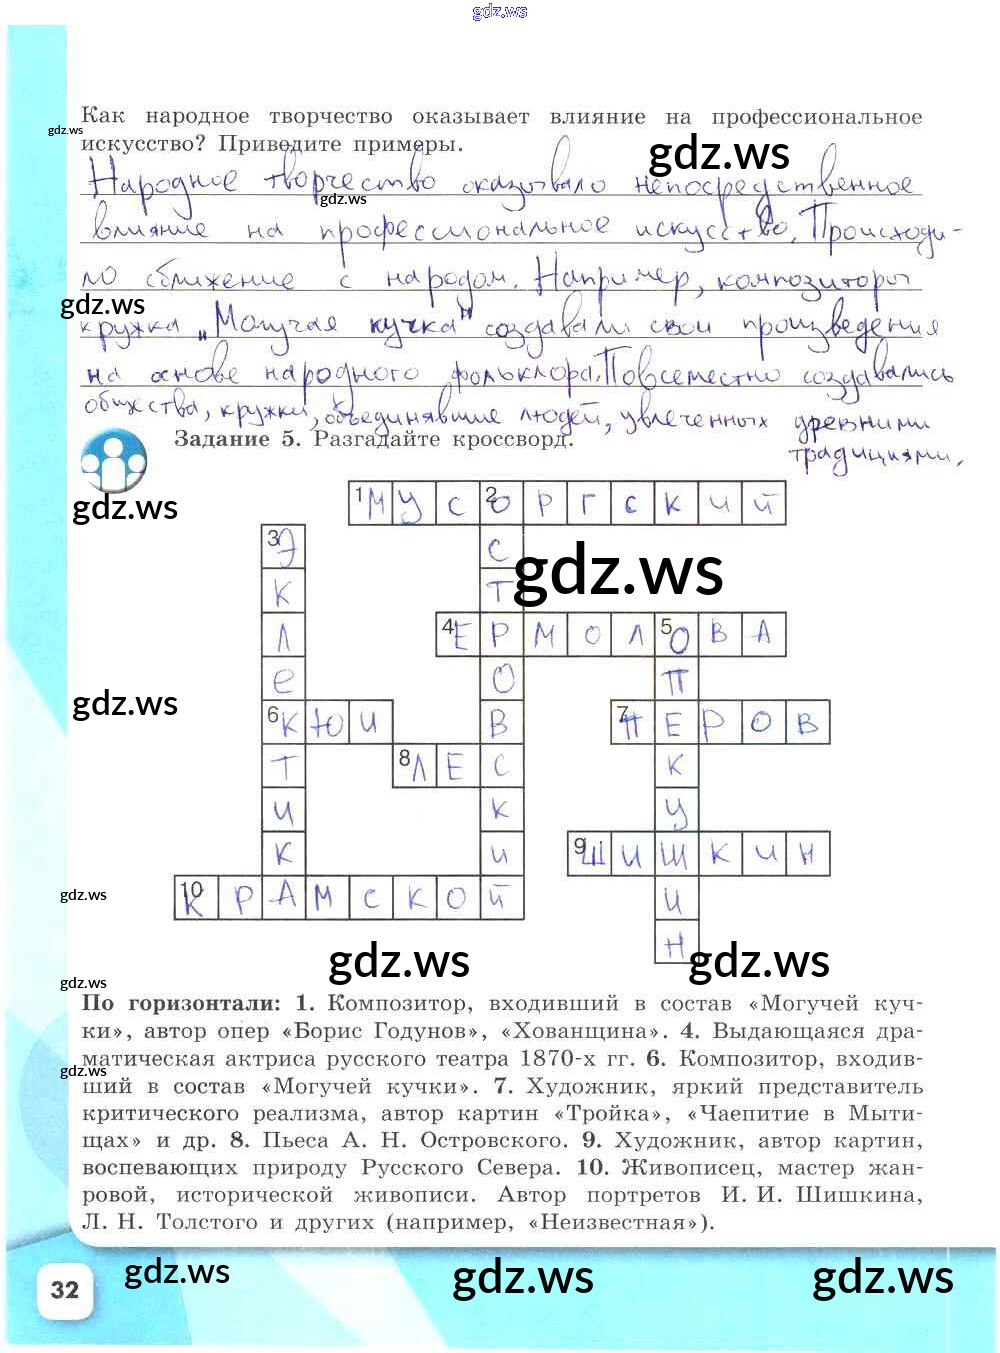 gdz.ws
Как народное творчество оказывает влияние на профессиональное
gdz.ws
искусство? Приведите примеры.
gdz.ws
Народное творчество оказывало непосредственное
gdz.ws
влияние на профессиональное искусство. Происходи-
ло сближение с народом. Например, композиторы
gdz.ws
кружка „Могучая кучка" создавали свои произведения
на основе народного фольклора. Повсеместно создавались
общества, кружки, объединявшие людей, увлеченных древними
традициями.
Задание 5. Разгадайте кроссворд.
gdz.ws
1 МУСОРГСКИЙ
2 ОСТРОВСКИЙ
3 ЭКЛЕКТИКА
gdz.ws
4 ЕРМОЛОВА
5 ОПЕКУШИН
gdz.ws
6 КЮИ
7 ПЕРОВ
8 ЛЕС
9 ШИШКИН
10 КРАМСКОЙ
gdz.ws
gdz.ws
gdz.ws
gdz.ws
По горизонтали: 1. Композитор, входивший в состав «Могучей куч-
ки», автор опер «Борис Годунов», «Хованщина». 4. Выдающаяся дра-
матическая актриса русского театра 1870-х гг. 6. Композитор, входив-
gdz.ws
ший в состав «Могучей кучки». 7. Художник, яркий представитель
критического реализма, автор картин «Тройка», «Чаепитие в Мыти-
щах» и др. 8. Пьеса А. Н. Островского. 9. Художник, автор картин,
воспевающих природу Русского Севера. 10. Живописец, мастер жан-
gdz.ws
ровой, исторической живописи. Автор портретов И. И. Шишкина,
Л. Н. Толстого и других (например, «Неизвестная»).
gdz.ws
gdz.ws
gdz.ws
32